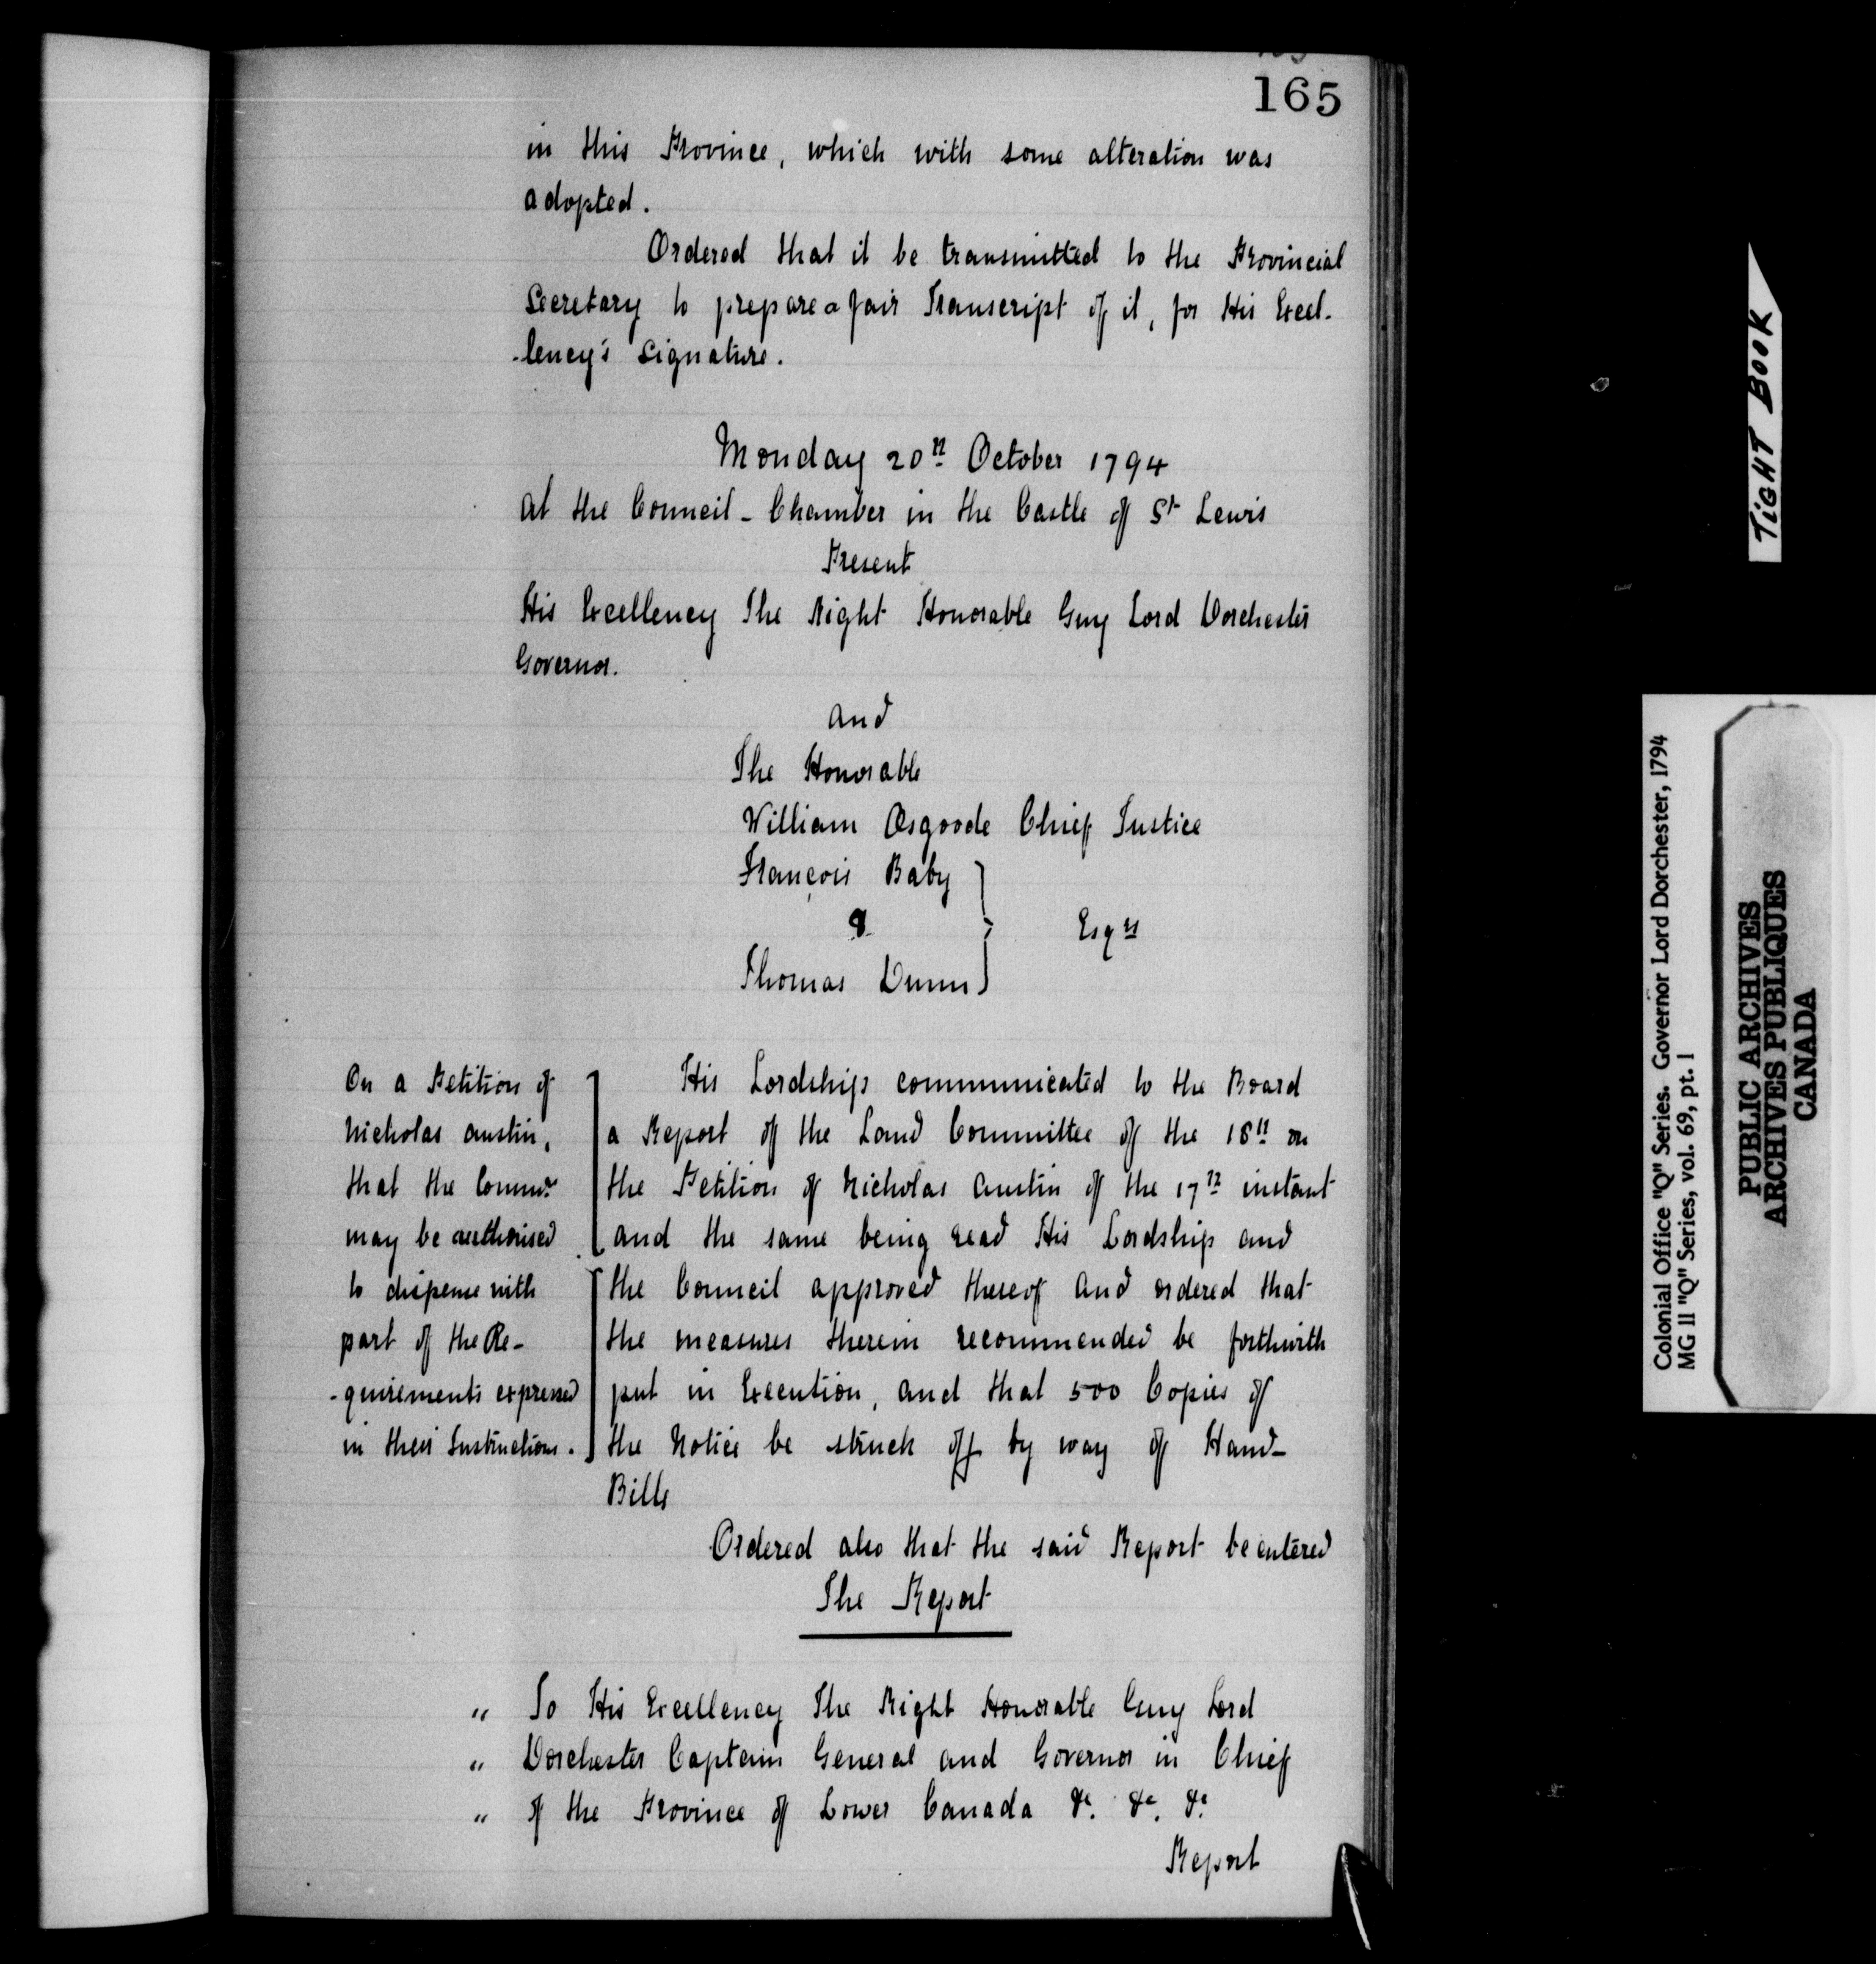 165
in this Province, which with some alteration was
adopted.
Ordered that it be transmitted to the Provincial
Secretary to prepare a fair Transcript of it, for His Excel-
-lency's Signature.
Monday 20th October 1794
At the Council-Chamber in the Castle of St Lewis
Present
His Excellency The Right Honorable Guy Lord Dorchester
Governor.
and
The Honorable
William Osgoode Chief Justice
François Baby
&
Esqrs
Thomas Dunn
On a Petition of
Nicholas Austin,
that the Commrs
may be authorised
to dispense with
part of the Re-
-quirements expressed
in their Instructions.
His Lordship communicated to the Board
a Report of the Land Committee of the 18th on
the Petition of Nicholas Austin of the 17th instant
and the same being read His Lordship and
the Council approved thereof and ordered that
the measures therein recommended be forthwith
put in Execution, and that 500 Copies of
the Notice be struck off by way of Hand-
Bills
Ordered also that the said Report be entered
The Report
" To His Excellency The Right Honorable Guy Lord
" Dorchester Captain General and Governor in Chief
" of the Province of Lower Canada &c. &c. &c.
Report
TIGHT BOOK
Colonial Office "Q" Series. Governor Lord Dorchester, 1794
MG 11 "Q" Series, vol. 69, pt. 1
PUBLIC ARCHIVES
ARCHIVES PUBLIQUES
CANADA